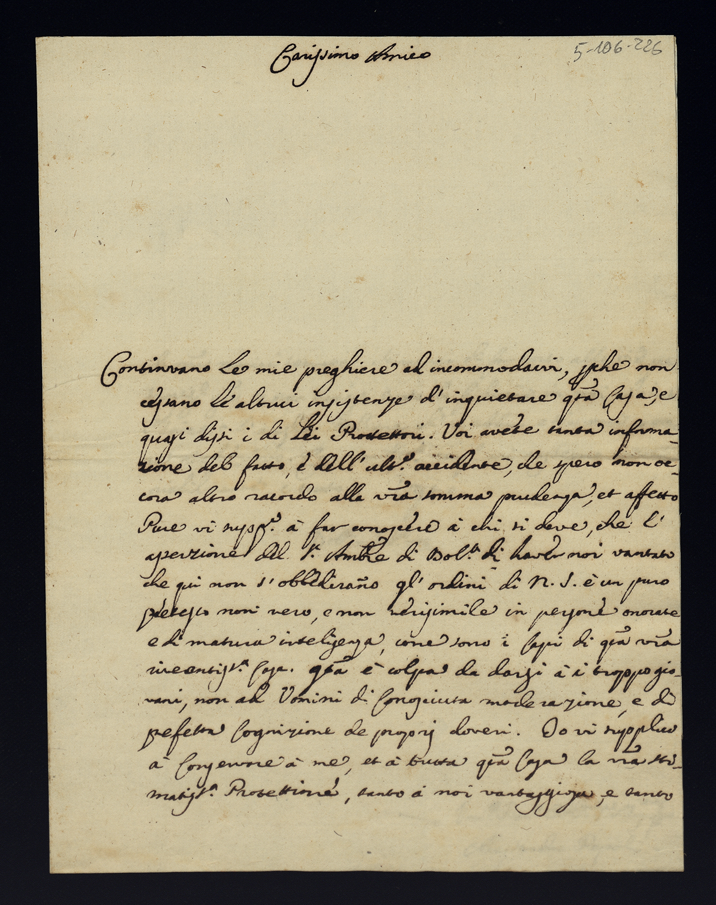 5-106-226
Carissimo Amico
Continuano le mie preghiere ad incommodarvi, pche non
cessano le altrui insistenze d'inquietare qta Casa, e
quasi dissi i di Lei Protettori. Voi avete tanta informa-
zione del fatto, e dell'ult.o accidente, che spero non oc-
cora altro racordo alla vra somma prudenza, et affetto
Pure vi supp.o à far conoscere à chi si deve, che l'
aperzione del S.r Ambre di Bol.a di haver noi vantato
che qui non s'obbediranno gl'ordini di N. S. è un puro
pretesto non vero, e non verisimile in persone onorate
e di matura inteligenza, come sono i Capi di qta vra
incentiss.a Casa. qta è colpa da darsi à i troppo gio-
vani, non ad Uomini di Conosciuta moderazione, e di
pefetta Cognizione de proprj doveri. Io vi supplico
à Conservare à me, et à tutta qta Casa la vra sti-
matiss.a Protettione, tanto à noi vantaggiosa, e tanto